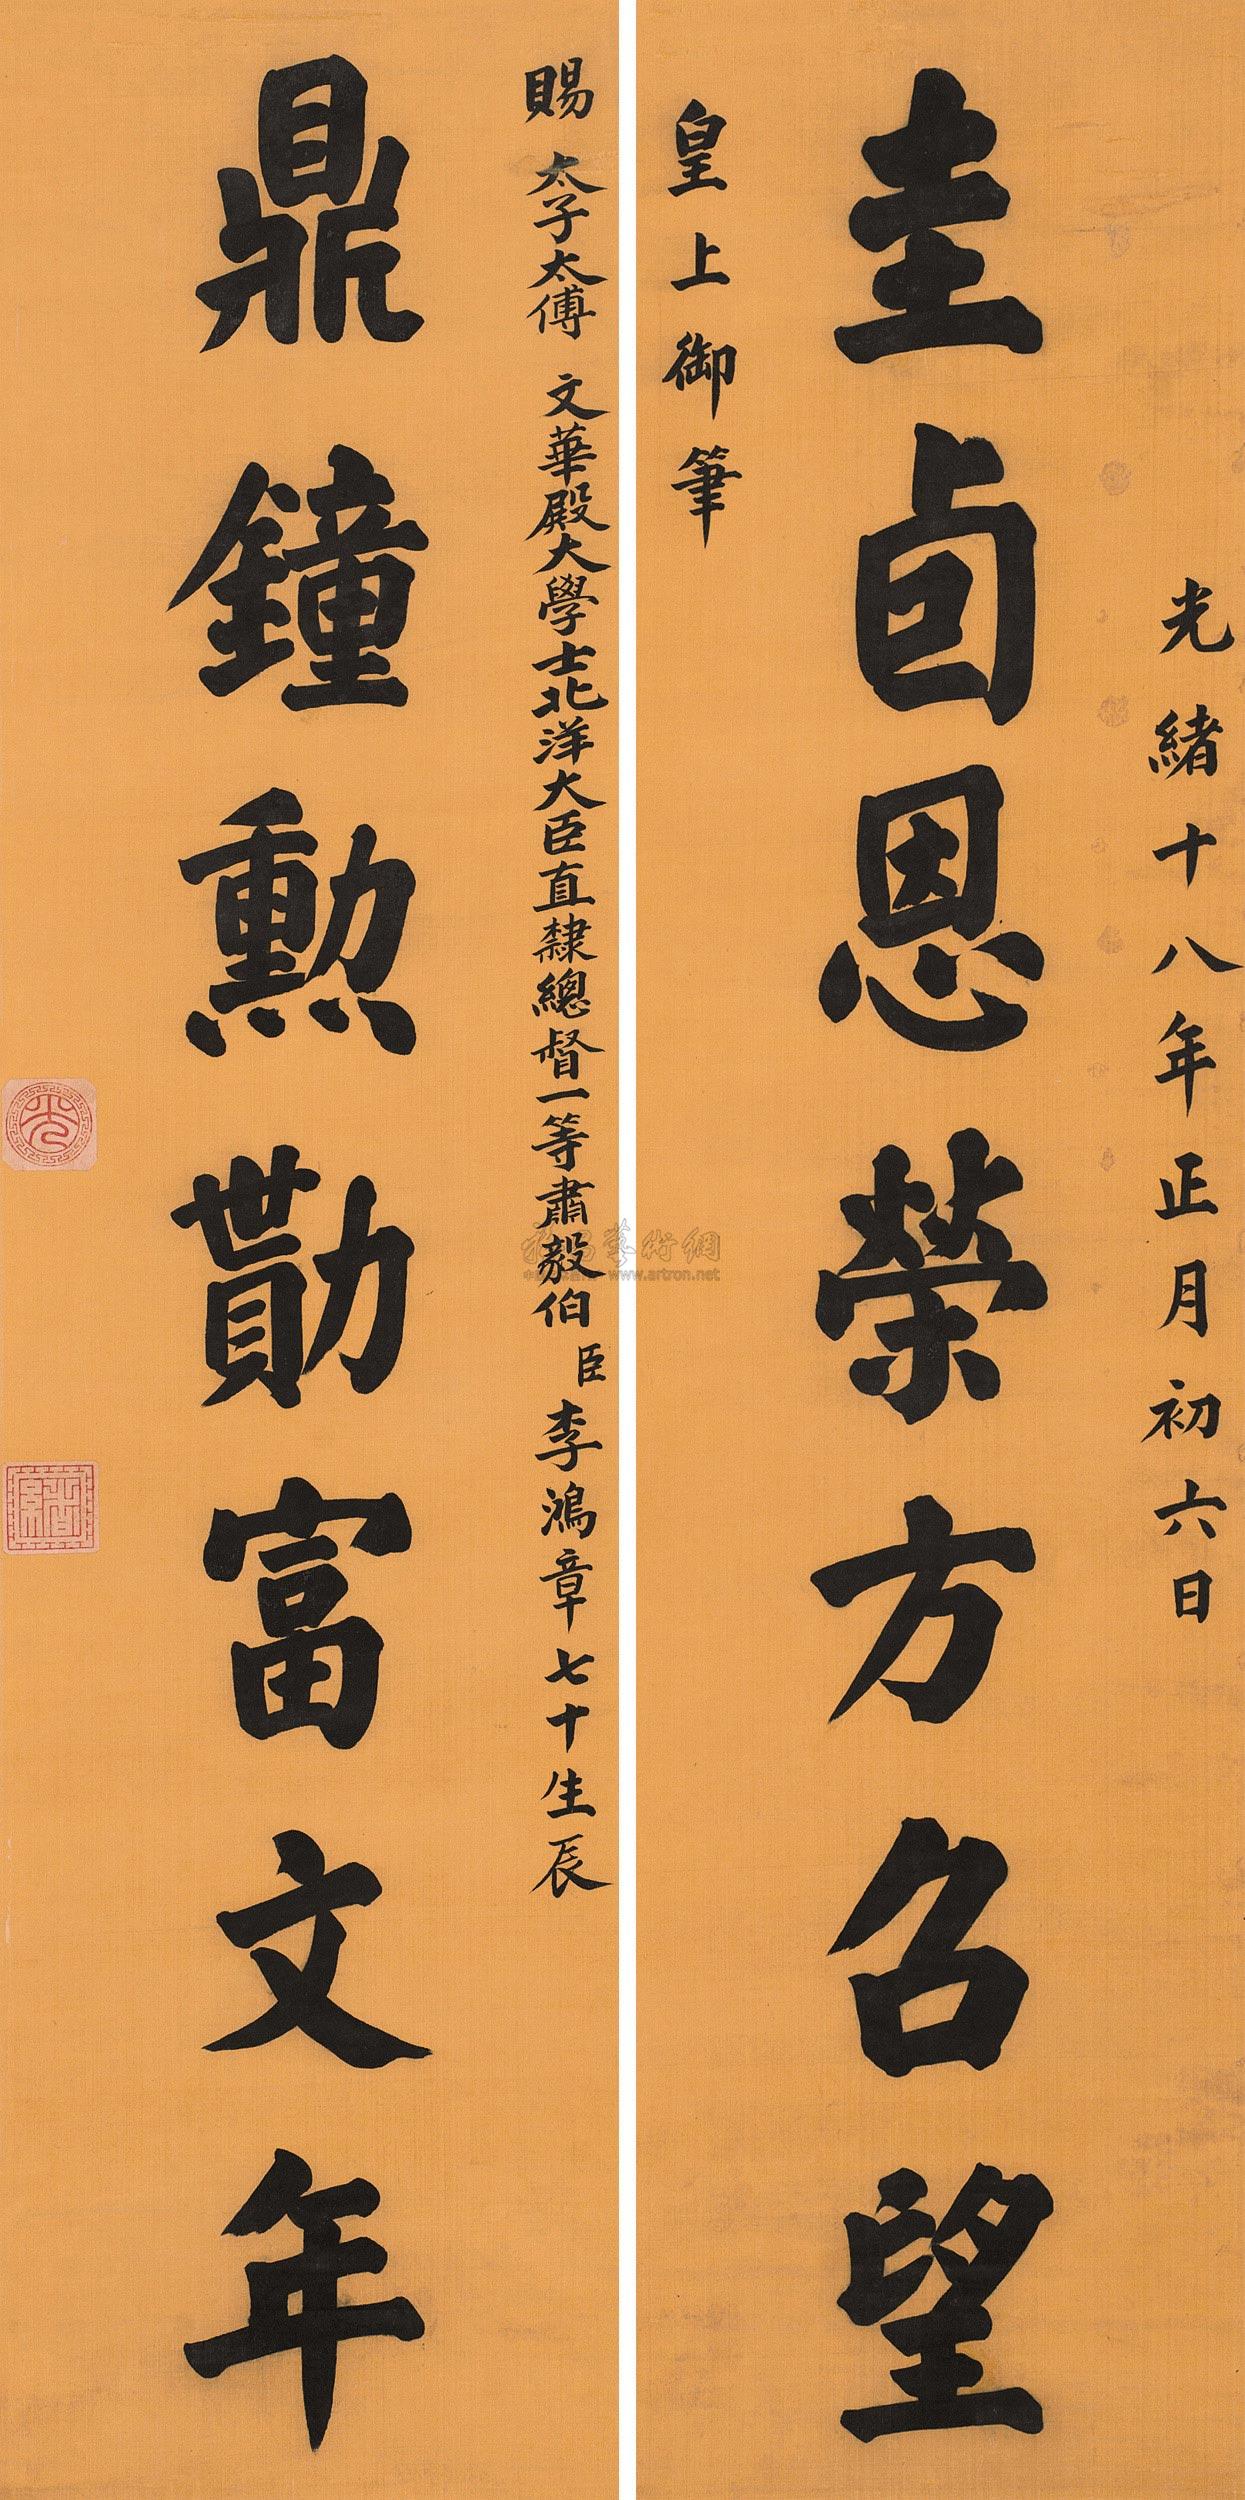 光緒十八年正月初六日
圭卣恩榮方召望
皇上御筆
賜 太子太傅 文華殿大學士北洋大臣直隸總督一等肅毅伯臣李鴻章七十生辰
鼎鐘勳勩富文年
光
緒
www.artron.net